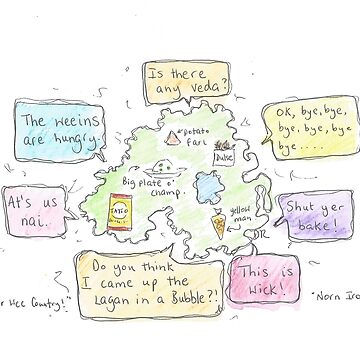 Is there
any veda?
The weeins
are hungry.
OK, bye, bye,
bye, bye, bye
bye....
potato
farl
Dulse
Big plate o'
champ.
At's us
nai.
TAYTO
yellow
man
Shut yer
bake!
Do you think
I came up the
Lagan in a Bubble?!
This is
Wick!
r Wee Country!"
"Norn Iro